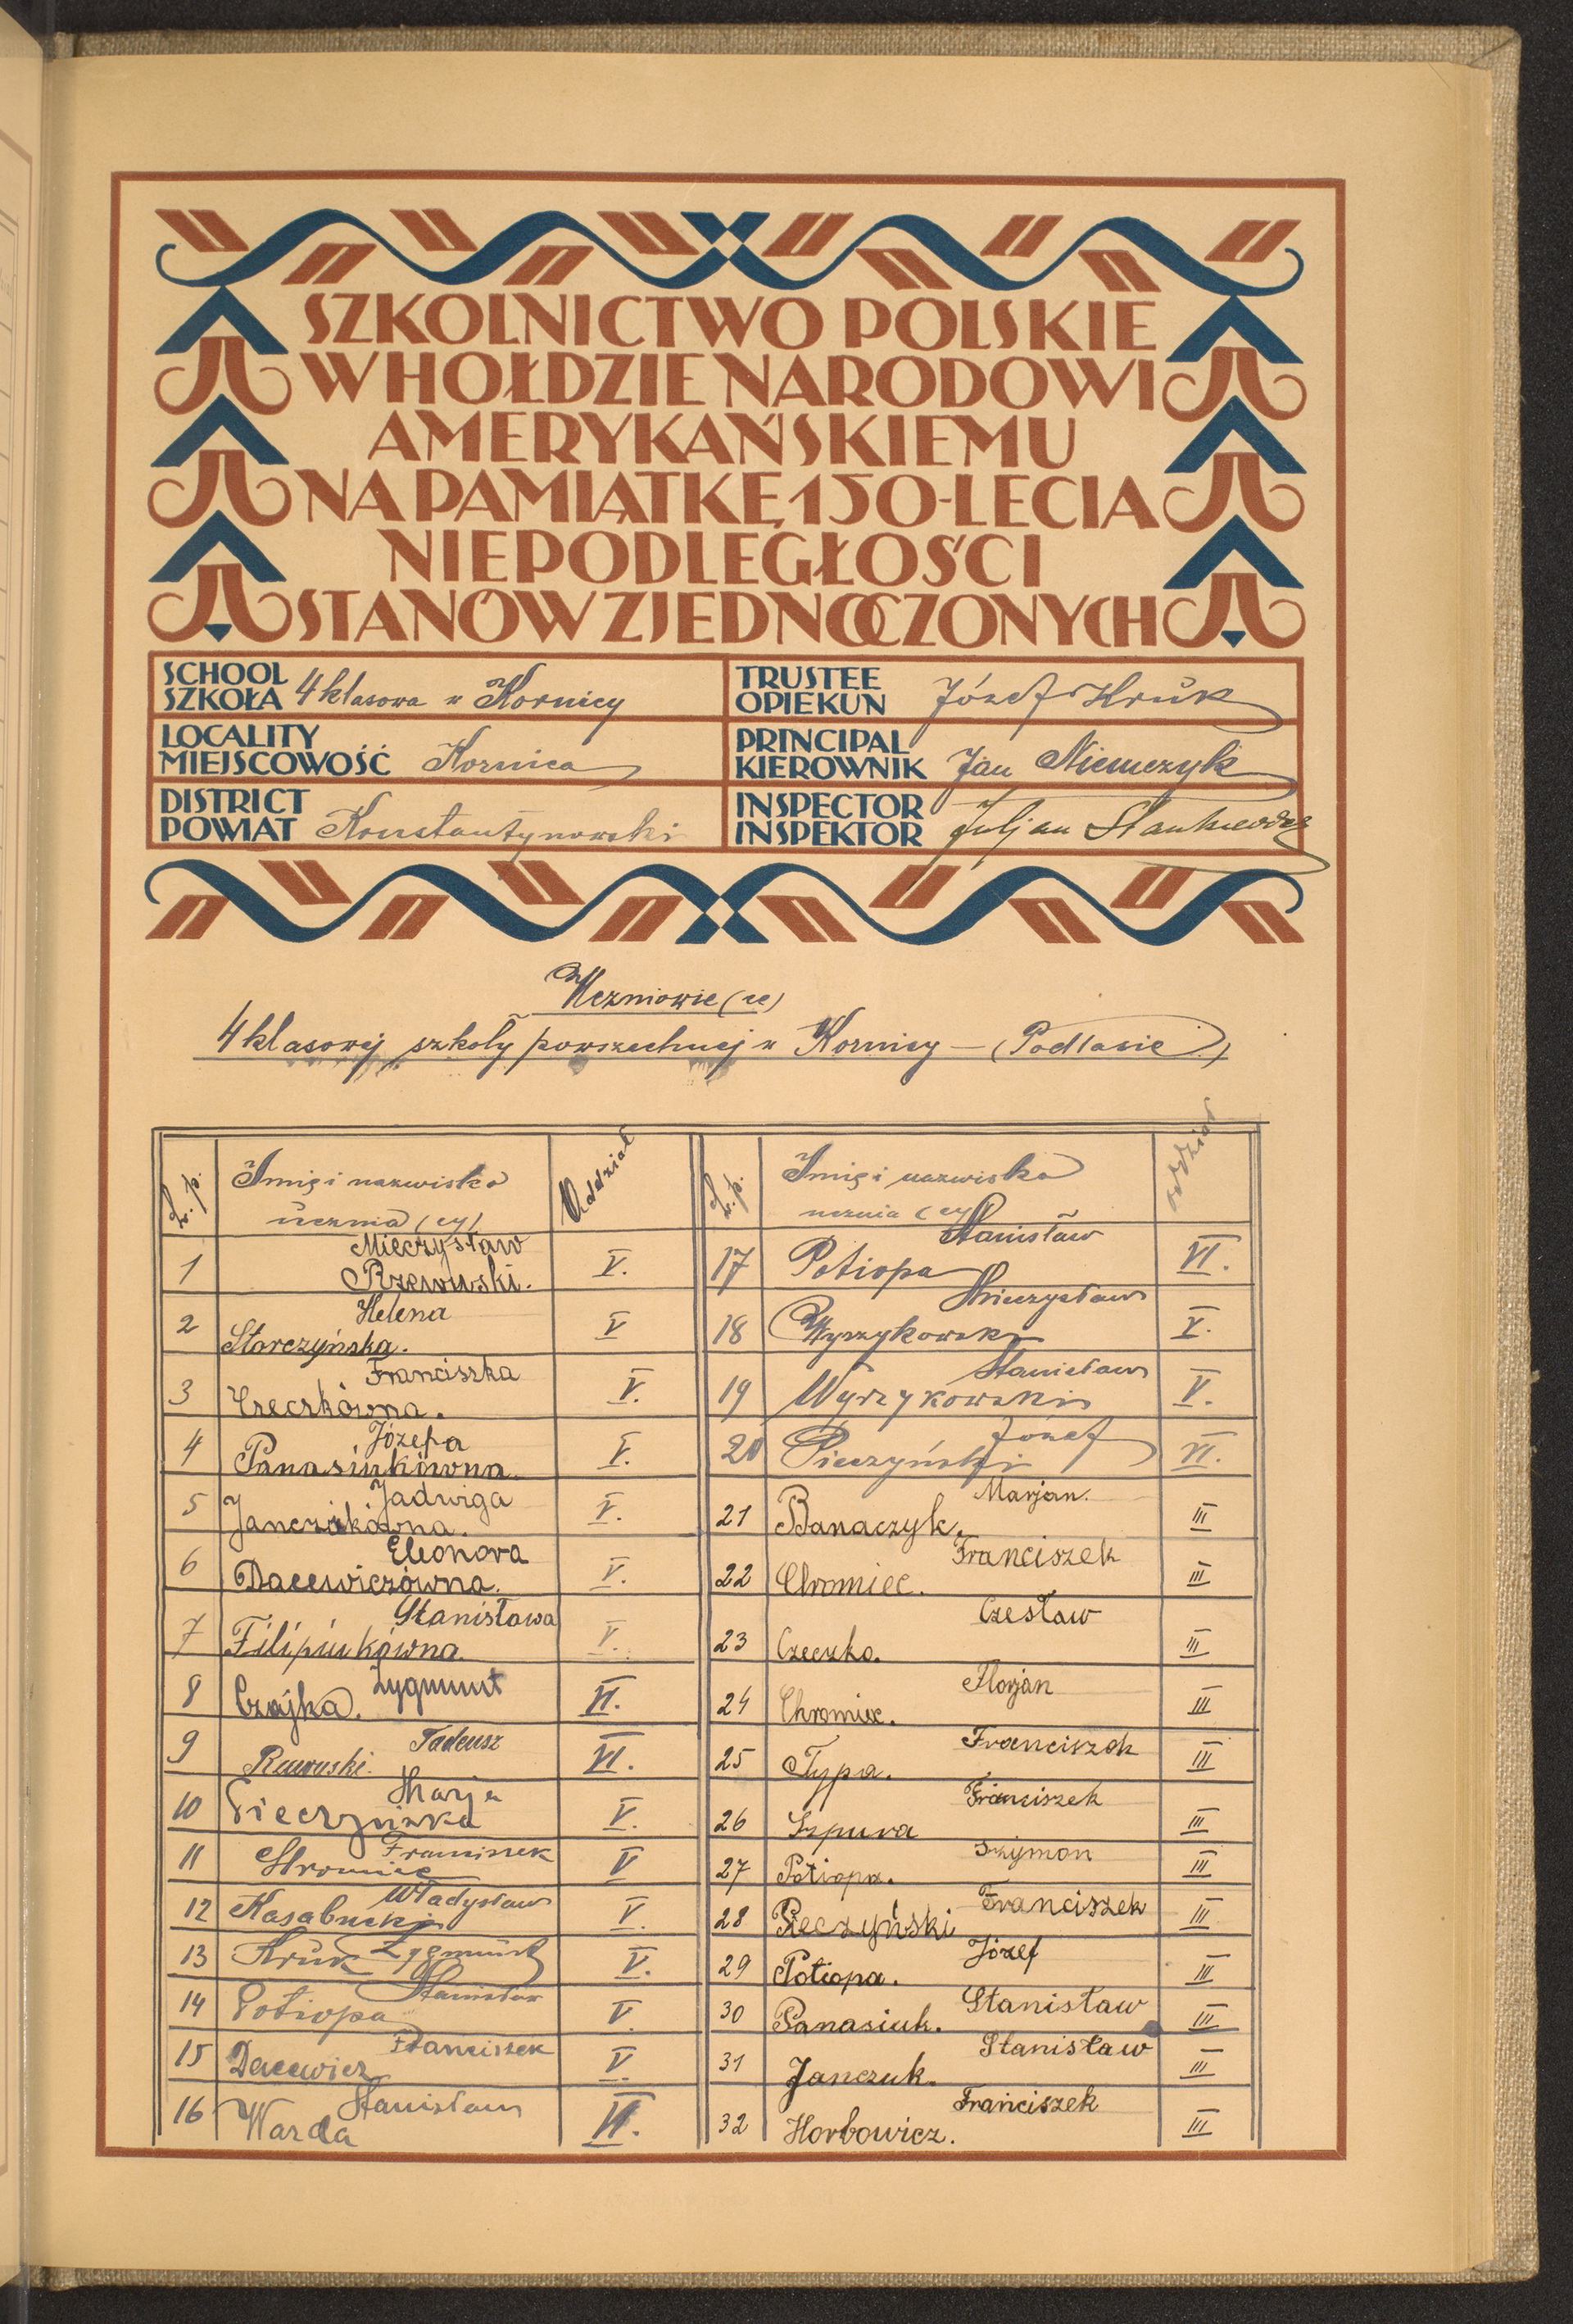 SZKOLNICTWO POLSKIE
W HOŁDZIE NARODOWI
AMERYKAŃSKIEMU
NA PAMIĄTKĘ 150-LECIA
NIEPODLEGŁOŚCI
STANÓW ZJEDNOCZONYCH
SCHOOL
SZKOŁA 4 klasowa w Kornicy
TRUSTEE
OPIEKUN Józef Kruk
LOCALITY
MIEJSCOWOŚĆ Kornica
PRINCIPAL
KIEROWNIK Jan Niemczyk
DISTRICT
POWIAT Konstantynowski
INSPECTOR
INSPEKTOR Juljan Stankiewicz
Uczniowie (ce)
4 klasowej szkoły powszechnej w Kornicy — (Podlasie)
L.p. Imię i nazwisko Oddział
ucznia (cy)
1 Mieczysław V.
Rzewuski.
2 Helena V
Storczyńska.
3 Franciszka V.
Czeczkówna.
4 Józefa V.
Panasiukówna.
5 Jadwiga V.
Janczukówna.
6 Eleonora V.
Dacewiczówna.
7 Stanisława V.
Filipiukówna.
8 Zygmunt VI.
Czajka.
9 Tadeusz VI.
Rzewuski.
10 Marja V.
Pieczyńska
11 Franciszek V
Chromiec
12 Władysław V.
Kasabucki
13 Kruk Zygmunt V.
14 Stanisław V.
Potiopa
15 Franciszek V.
Dacewicz
16 Stanisław VI.
Warda
L.p. Imię i nazwisko oddział
ucznia (cy)
17 Stanisław VI.
Potiopa
18 Mieczysław V.
Wyrzykowski
19 Stanisław V.
Wyrzykowski
20 Józef VI.
Pieczyński
21 Marjan. III
Banaczyk.
22 Franciszek III
Chromiec.
23 Czesław III
Czeczko.
24 Florjan III
Chromiec.
25 Franciszek III
Typa.
26 Franciszek III
Szpura
27 Szymon III
Potiopa.
28 Franciszek III
Pieczyński
29 Józef III
Potiopa.
30 Stanisław III
Panasiuk.
31 Stanisław III
Janczuk.
32 Franciszek III
Horbowicz.